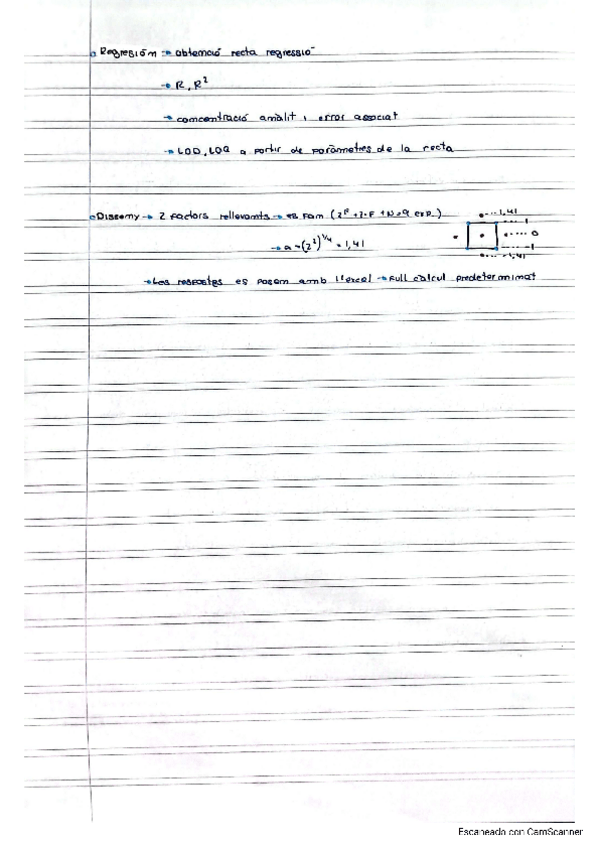 Regresión → obtenció recta regressió
→ R, R²
→ concentració analit i error associat
→ LOD, LOQ a partir de paràmetres de la recta
Disseny → 2 factors rellevants → es fan (2^F + 2·F + N = 9 exp.)
→ a = (2²)^1/4 = 1,41
1,41
1
0
-1
-1,41
→ Les respostes es posen amb l'excel → full càlcul predeterminat
Escaneado con CamScanner